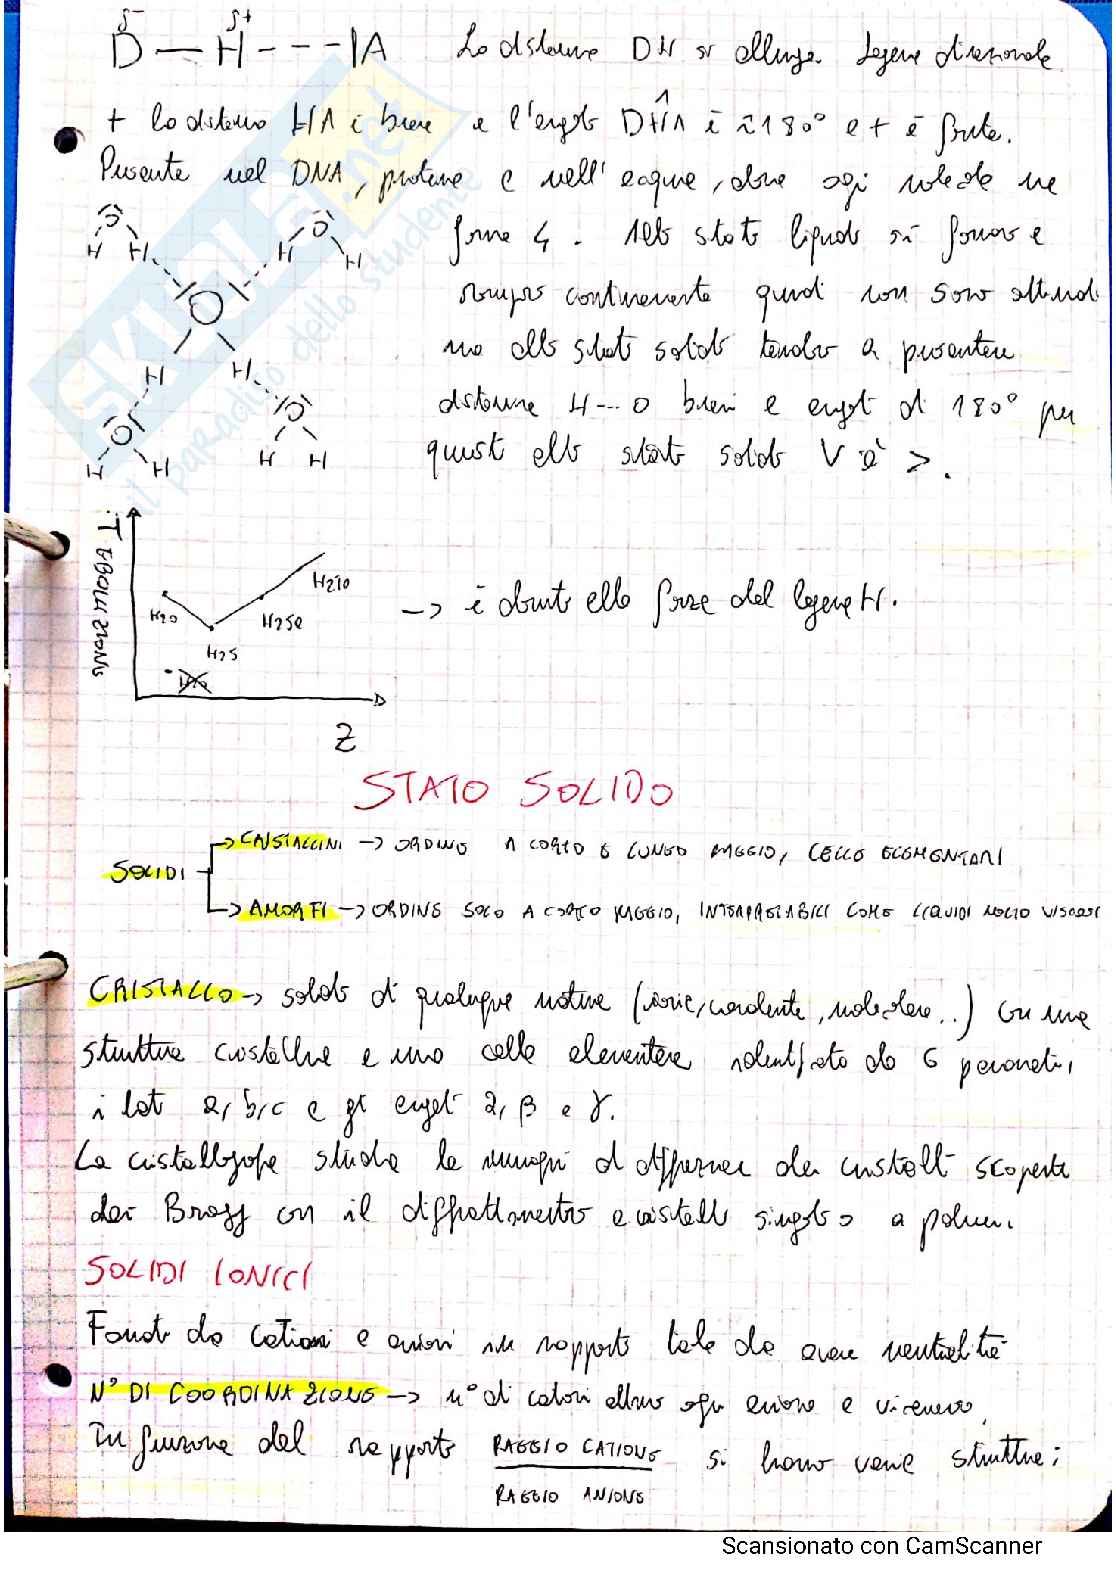 δ⁻ δ⁺
D — H - - - |A La distanza DH si allunga. Legame direzionale
+ la distanza HA è breve e l'angolo DĤA è ≈ 180° e + è forte.
Presente nel DNA, proteine e nell'acqua, dove ogni molecola ne
forma 4. Allo stato liquido si formano e
rompono continuamente quindi non sono
ma allo stato solido tendono a presentare
distanze H--- O brevi e angoli di 180° per
questo allo stato solido V è >.
O H H
O H H
O
H H
O H H
O H H
T EBOLLIZIONE
H2O
H2S
H2Se
H2TO
Z
→ è dovuto alla forza del legame H.
STATO SOLIDO
SOLIDI
→ CRISTALLINI → ORDINE A CORTO E LUNGO RAGGIO, CELLE ELEMENTARI
→ AMORFI → ORDINE SOLO A CORTO RAGGIO, INTERPRETABILI COME LIQUIDI MOLTO VISCOSI
CRISTALLO → solido di qualunque natura (ionica, covalente, molecolare..) con una
struttura cristallina e una cella elementare identificata da 6 parametri,
i lati a, b, c e gli angoli α, β e γ.
La cristallografia studia le immagini di diffrazione dei cristalli scoperta
dai Bragg con il diffrattometro a cristallo singolo o a polveri.
SOLIDI IONICI
Formati da cationi e anioni in rapporto tale da avere neutralità
N° DI COORDINAZIONE → n° di cationi attorno ogni anione e viceversa.
In funzione del rapporto RAGGIO CATIONE si hanno varie strutture:
RAGGIO ANIONE
SKUOLA.net
il paradiso dello studente
Scansionato con CamScanner